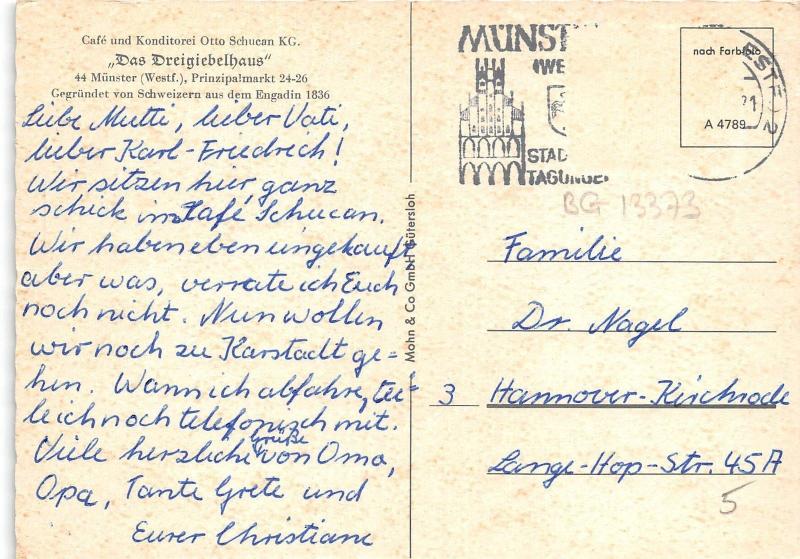 Café und Konditorei Otto Schucan KG.
„Das Dreigiebelhaus“
44 Münster (Westf.), Prinzipalmarkt 24-26
Gegründet von Schweizern aus dem Engadin 1836
Liebe Mutti, lieber Vati,
lieber Karl-Friedrech!
Wir sitzen hier ganz
schick im Café Schucan.
Wir haben eben eingekauft
aber was, verrate ich Euch
noch nicht. Nun wollen
wir noch zu Karstadt ge-
hen. Wann ich abfahre, tei-
le ich noch telefonisch mit.
Viele herzliche Grüße von Oma,
Opa, Tante Grete und
Eurer Christiane
Mohn & Co GmbH Gütersloh
MÜNST
(WE
STAD
TAGUNGE
ESTF) 2
71
nach Farbfoto
A 4789
BG 13373
Familie
Dr. Nagel
3 Hannover-Kirchrode
Lange-Hop-Str. 45A
5